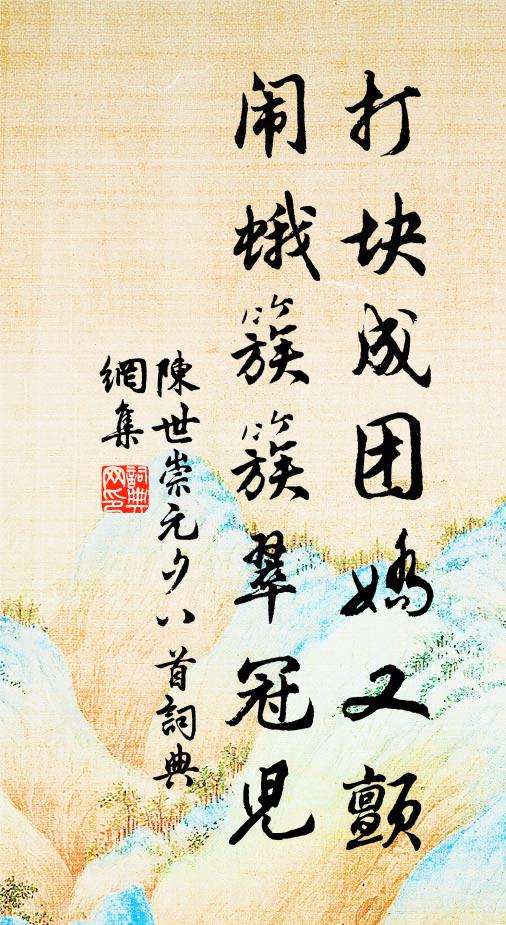 打块成团娇又颤
闹蛾簇簇翠冠儿
陳世崇元夕八首詞典
網集
詞典
网印